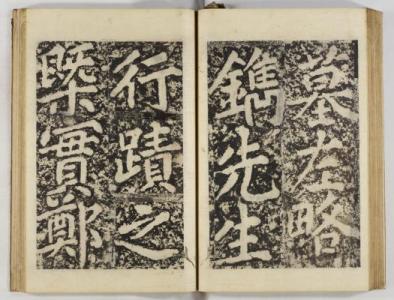 墓左略
鐫先生
行蹟之
槩實鄭